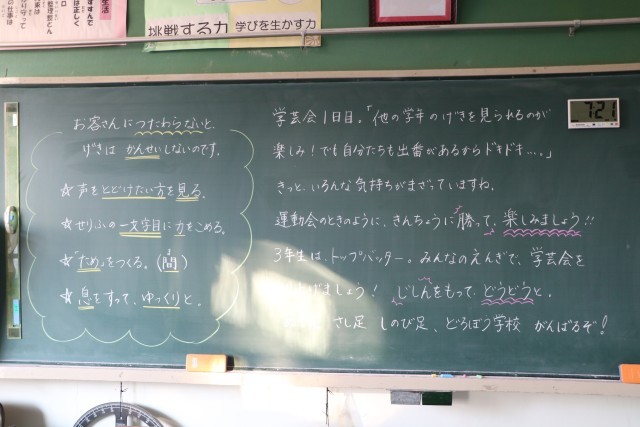 挑戦する力 学びを生かす力
お客さんにつたわらないと、
げきは かんせいしないのです。
☆声をとどけたい方を見る。
☆せりふの一文字目に力をこめる。
☆「ため」をつくる。(間)
ま
☆息をすって、ゆっくりと。
学芸会1日目。「他の学年のげきを見られるのが
楽しみ!でも自分たちも出番があるからドキドキ…。」
きっと、いろんな気持ちがまざっていますね。
運動会のときのように、きんちょうに勝って、楽しみましょう!!
3年生は、トップバッター。みんなのえんぎで、学芸会を
ましょう! じしんをもって、どうどうと。
さし足 しのび足、どろぼう学校 がんばるぞ!
7:21